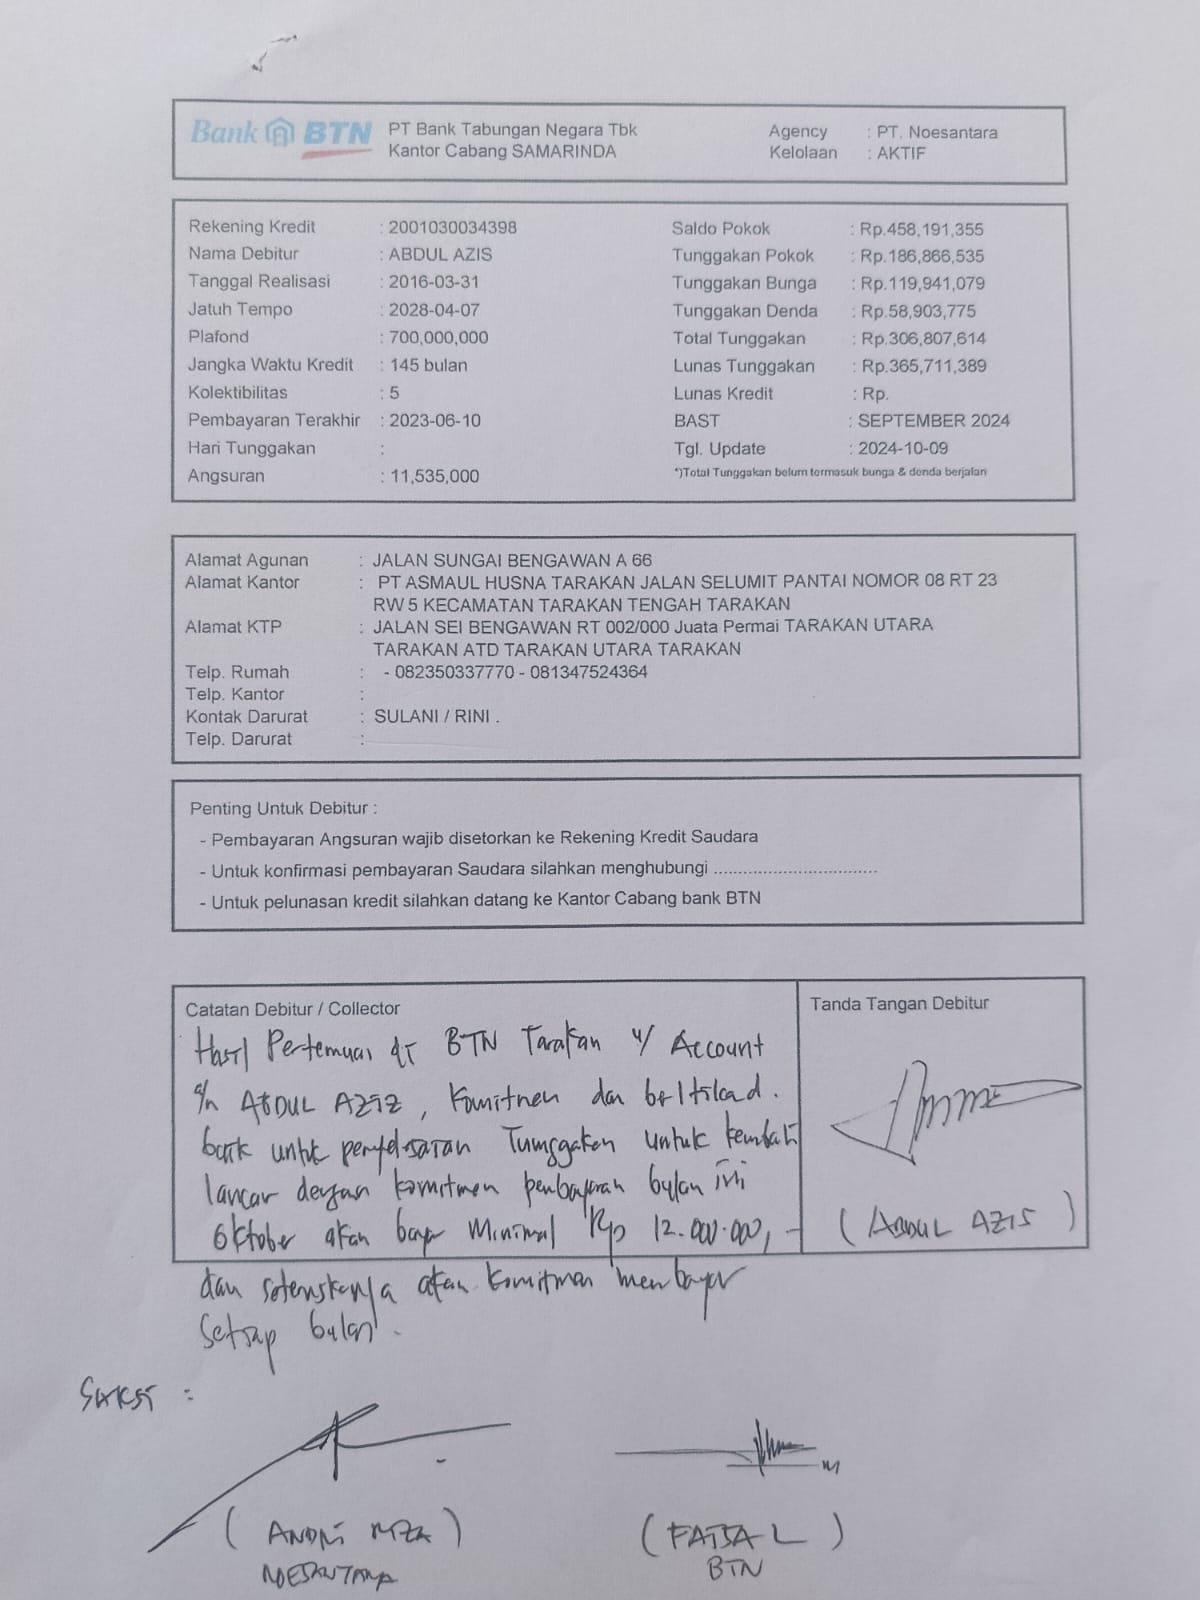 Bank BTN PT Bank Tabungan Negara Tbk Agency : PT. Noesantara
Kantor Cabang SAMARINDA Kelolaan : AKTIF
Rekening Kredit : 2001030034398 Saldo Pokok : Rp.458,191,355
Nama Debitur : ABDUL AZIS Tunggakan Pokok : Rp.186,866,535
Tanggal Realisasi : 2016-03-31 Tunggakan Bunga : Rp.119,941,079
Jatuh Tempo : 2028-04-07 Tunggakan Denda : Rp.58,903,775
Plafond : 700,000,000 Total Tunggakan : Rp.306,807,614
Jangka Waktu Kredit : 145 bulan Lunas Tunggakan : Rp.365,711,389
Kolektibilitas : 5 Lunas Kredit : Rp.
Pembayaran Terakhir : 2023-06-10 BAST : SEPTEMBER 2024
Hari Tunggakan : Tgl. Update : 2024-10-09
Angsuran : 11,535,000 *)Total Tunggakan belum termasuk bunga & denda berjalan
Alamat Agunan : JALAN SUNGAI BENGAWAN A 66
Alamat Kantor : PT ASMAUL HUSNA TARAKAN JALAN SELUMIT PANTAI NOMOR 08 RT 23
RW 5 KECAMATAN TARAKAN TENGAH TARAKAN
Alamat KTP : JALAN SEI BENGAWAN RT 002/000 Juata Permai TARAKAN UTARA
TARAKAN ATD TARAKAN UTARA TARAKAN
Telp. Rumah : - 082350337770 - 081347524364
Telp. Kantor :
Kontak Darurat : SULANI / RINI .
Telp. Darurat :
Penting Untuk Debitur :
- Pembayaran Angsuran wajib disetorkan ke Rekening Kredit Saudara
- Untuk konfirmasi pembayaran Saudara silahkan menghubungi ................................
- Untuk pelunasan kredit silahkan datang ke Kantor Cabang bank BTN
Catatan Debitur / Collector Tanda Tangan Debitur
Hasil Pertemuan di BTN Tarakan u/ Account
a/n ABDUL AZIZ, Komitmen dan
baik untuk penyelesaian Tunggakan untuk kembali
lancar dengan komitmen pembayaran bulan ini
Oktober akan bayar Minimal Rp 12.000.000,-
(ABDUL AZIS)
dan seterusnya akan komitmen membayar
setiap bulan.
Saksi :
(ANDRI RIZA) (FAISAL)
NOESANTARA BTN